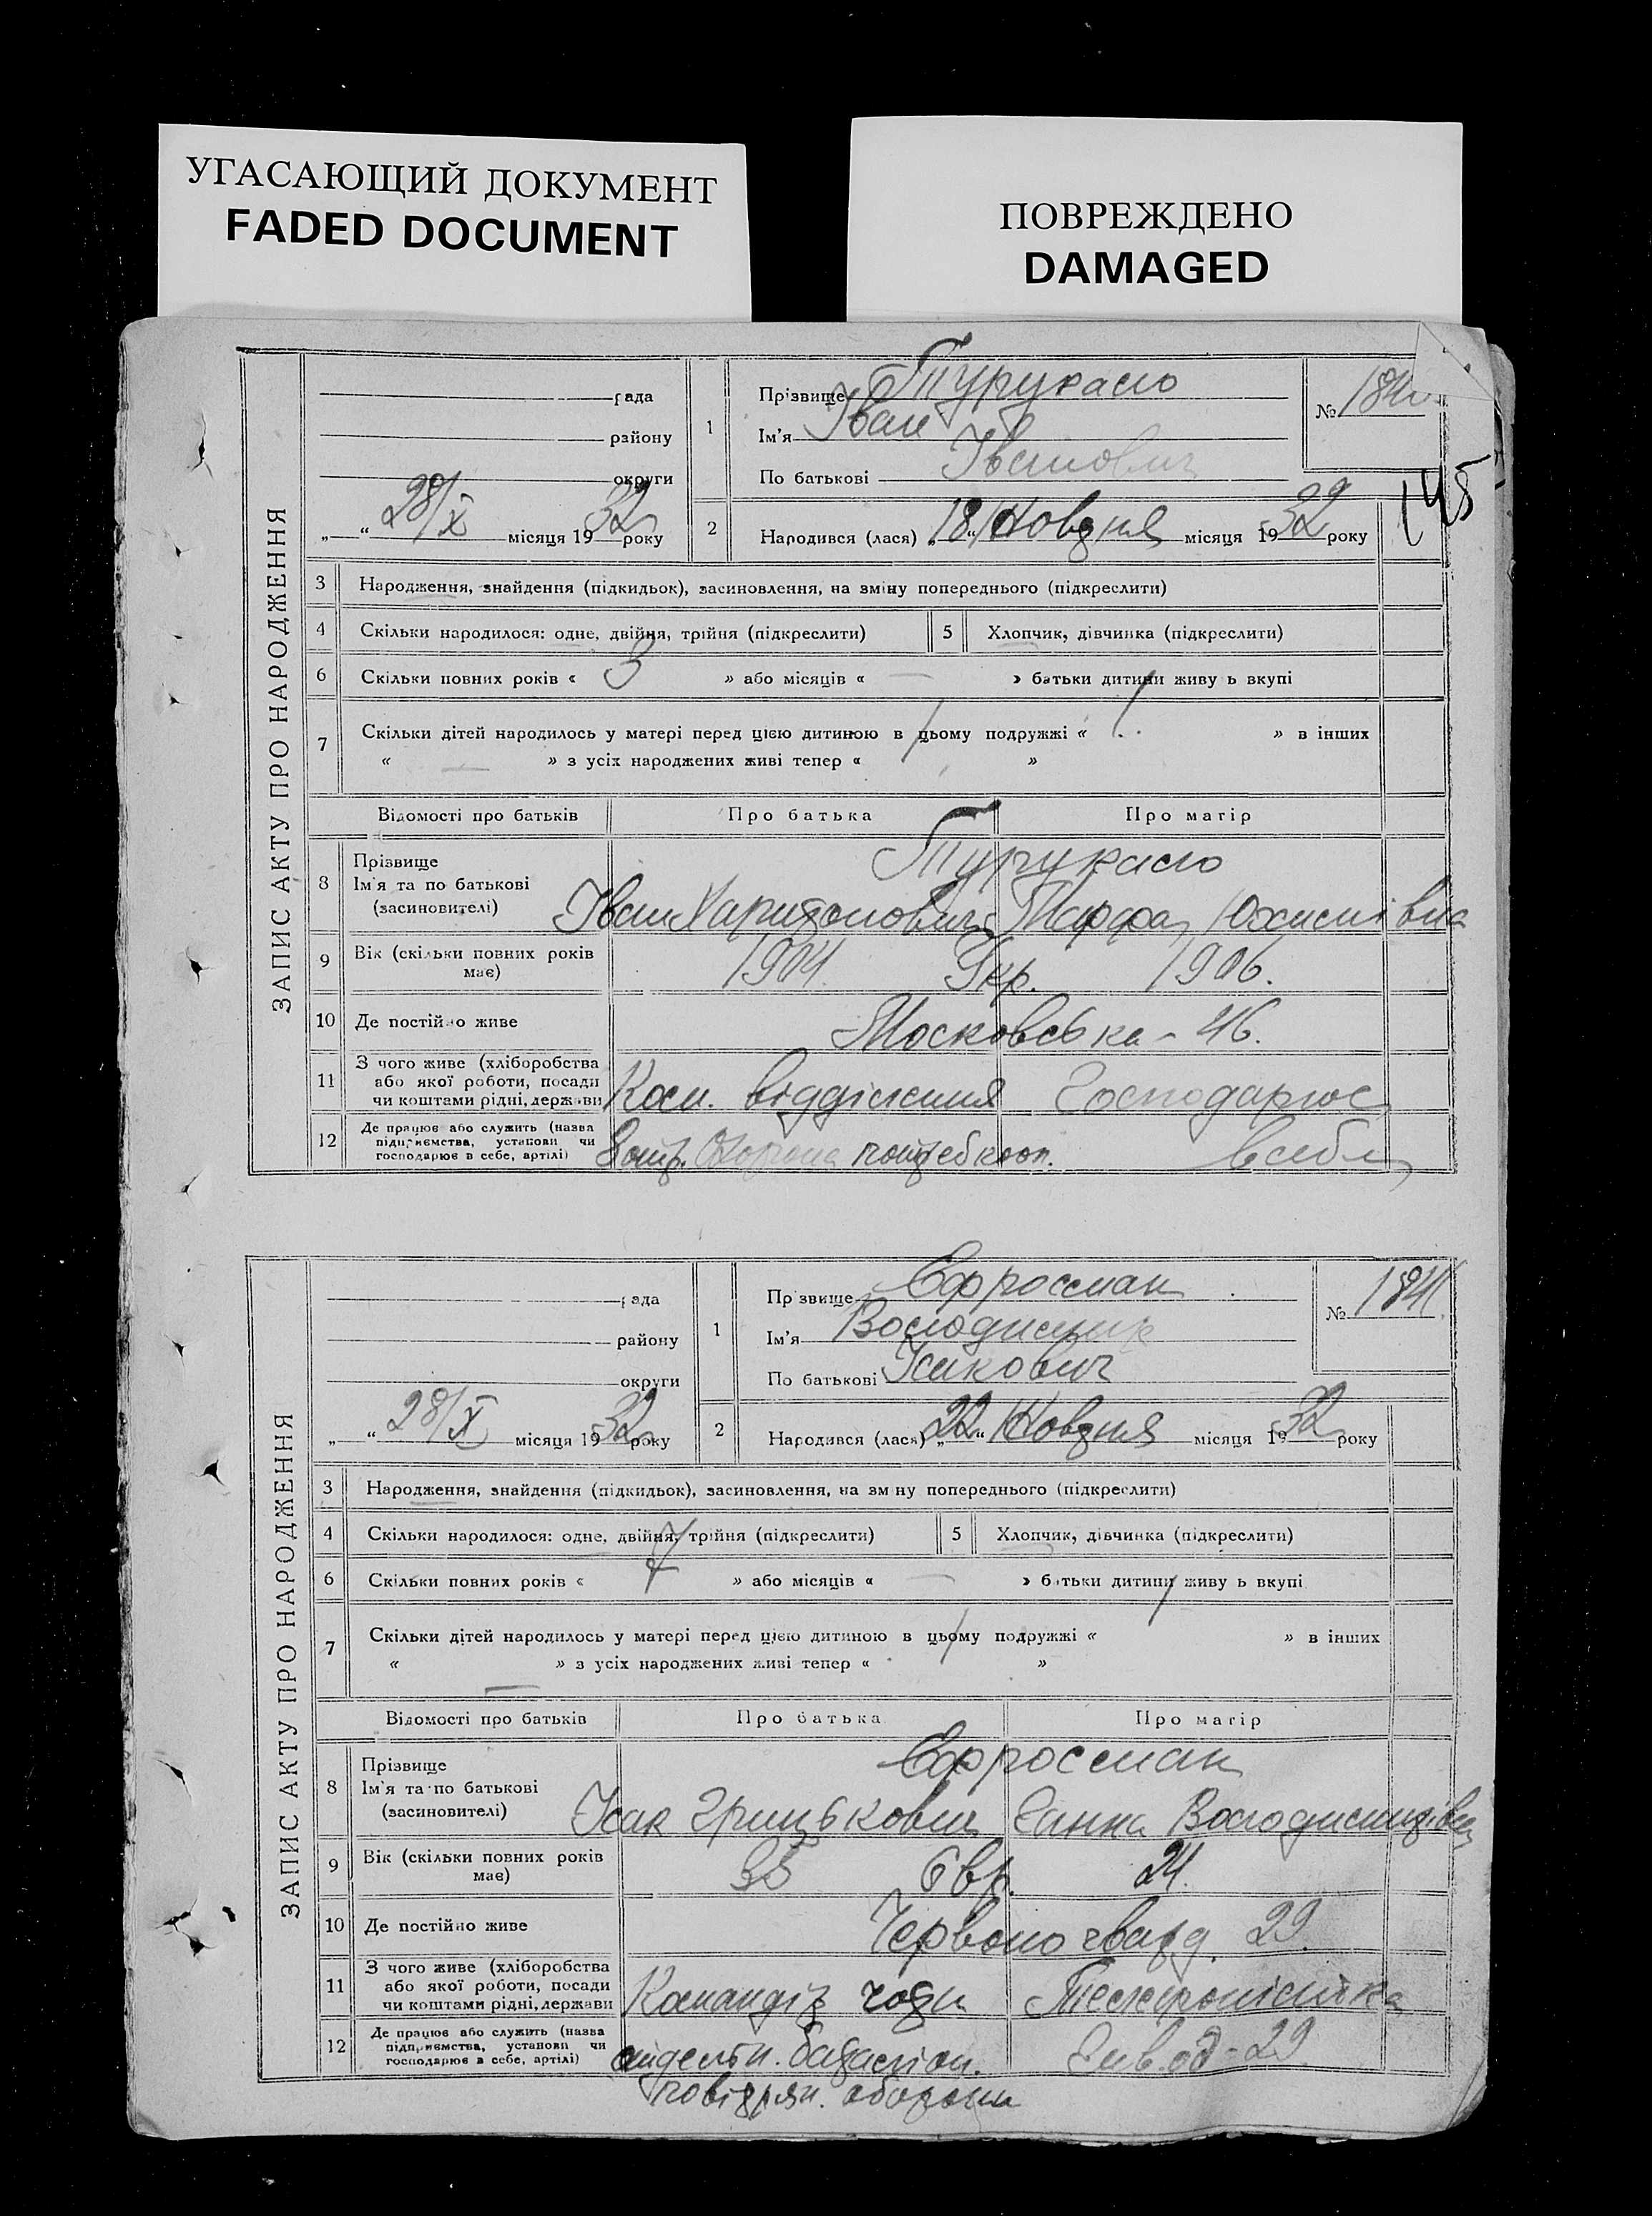 УГАСАЮЩИЙ ДОКУМЕНТ
FADED DOCUMENT
ПОВРЕЖДЕНО
DAMAGED
ЗАПИС АКТУ ПРО НАРОДЖЕННЯ
рада
району
округи
„ “ 28/X місяця 1932 року
1 Прізвище Турукало
Ім'я Іван
По батькові Іванович
№ 1840
145
2 Народився (лася) „18“ Жовтня місяця 1932 року
3 Народження, знайдення (підкидьок), засиновлення, на зміну попереднього (підкреслити)
4 Скільки народилося: одне, двійня, трійня (підкреслити) 5 Хлопчик, дівчинка (підкреслити)
6 Скільки повних років « 3 » або місяців « — » батьки дитини живу ь вкупі
7 Скільки дітей народилось у матері перед цією дитиною в цьому подружжі « » в інших
« — » з усіх народжених живі тепер « »
Відомості про батьків Про батька Про матір
8 Прізвище Турукало
Ім'я та по батькові
(засиновителі) Іван Харитонович Марфа Юхимівна
9 Вік (скільки повних років має) 1904 Укр. 1906.
10 Де постійно живе Московська - 46.
11 З чого живе (хліборобства
або якої роботи, посади
чи коштами рідні, держави Ком. відділення Господарює
12 Де працює або служить (назва
підприємства, установи чи
господарює в себе, артілі) Охорона в себе
ЗАПИС АКТУ ПРО НАРОДЖЕННЯ
рада
району
округи
„ “ 28/X місяця 1932 року
1 Прізвище Ефроссман
Ім'я Володимир
По батькові Ісакович
№ 1841
2 Народився (лася) „22“ Жовтня місяця 1932 року
3 Народження, знайдення (підкидьок), засиновлення, на зм ну попереднього (підкреслити)
4 Скільки народилося: одне, двійня, трійня (підкреслити) 5 Хлопчик, дівчинка (підкреслити)
6 Скільки повних років « » або місяців « — » батьки дитини живу ь вкупі
7 Скільки дітей народилось у матері перед цією дитиною в цьому подружжі « » в інших
« — » з усіх народжених живі тепер « »
Відомості про батьків Про батька Про матір
8 Прізвище Ефроссман
Ім'я та по батькові
(засиновителі) Ісак Грицькович Ганна Володимирівна
9 Вік (скільки повних років має) 35 Євр. 24.
10 Де постійно живе Червоногвард. 29.
11 З чого живе (хліборобства
або якої роботи, посади
чи коштами рідні, держави Командір роти Телефоністка
12 Де працює або служить (назва
підприємства, установи чи
господарює в себе, артілі) батальон. 29
повітрян. оборони